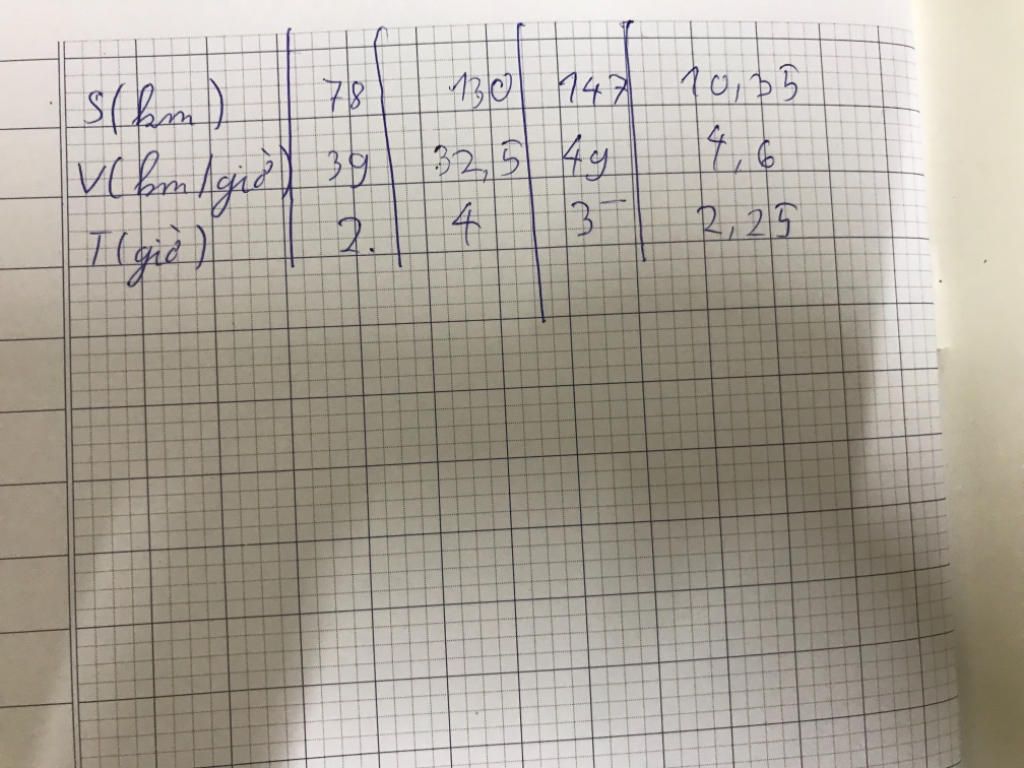 S(km) 78 130 147 10,35
V(km/giờ) 39 32,5 49 4,6
T(giờ) 2. 4 3 2,25